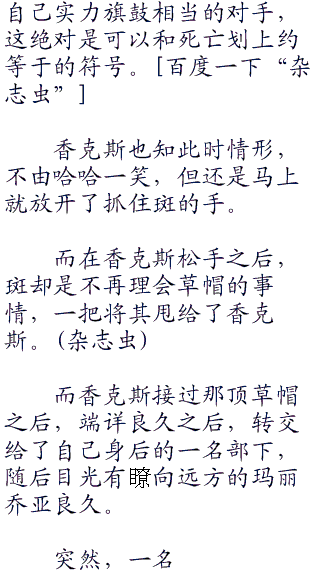 自己实力旗鼓相当的对手，
这绝对是可以和死亡划上约
等于的符号。[百度一下“杂
志虫”]
香克斯也知此时情形，
不由哈哈一笑，但还是马上
就放开了抓住斑的手。
而在香克斯松手之后，
斑却是不再理会草帽的事
情，一把将其甩给了香克
斯。(杂志虫)
而香克斯接过那顶草帽
之后，端详良久之后，转交
给了自己身后的一名部下，
随后目光有瞭向远方的玛丽
乔亚良久。
突然，一名